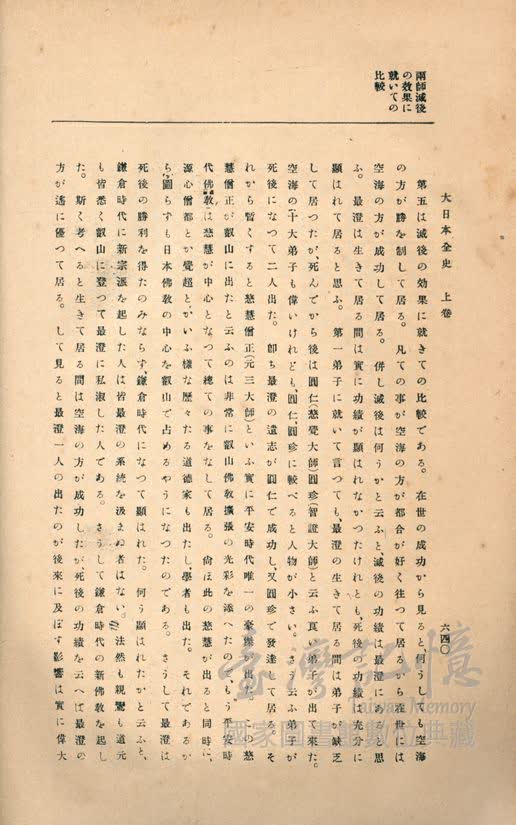 大日本全史　上卷
六四〇
兩師滅後
の效果に
就いての
比較
第五は滅後の効果に就きての比較である。在世の成功から見ると、何うしても空海
の方が勝を制して居る。凡ての事が空海の方が都合が好く往つて居るから在世には
空海の方が成功して居る。併し滅後は何うかと云ふと、滅後の功績は最澄にあると思
ふ。最澄は生きて居る間は實に功績が顯はれなかつたけれども、死後の功績は充分に
顯はれて居ると思ふ。第一弟子に就いて言つても、最澄の生きて居る間は弟子が缺乏
して居つたが、死んでから後は圓仁(慈覺大師)圓珍(智證大師)と云ふ眞い弟子が出て來た。
空海の十大弟子も偉いけれども、圓仁、圓珍に較べると人物が小さい。さう云ふ弟子が
死後になつて二人出た。卽ち最澄の遺志が圓仁で成功し、又圓珍で發達して居る。そ
れから暫くすると慈慧僧正(元三大師)といふ實に平安時代唯一の豪傑が出た。この慈
慧僧正が叡山に出たと云ふのは非常に叡山佛敎擴張の光彩を添へたので、もう平安時
代佛敎は慈慧が中心となつて總ての事をなして居る。尙ほ此の慈慧が出ると同時に、
源心僧都とか覺超とかいふ樣な歷々たる道德家も出たし、學者も出た。それであるか
ら、圖らずも日本佛敎の中心を叡山で占めるやうになつたのである。さうして最澄は
死後の勝利を得たのみならず、鎌倉時代になつて顯はれた。何う顯はれたかと云ふと、
鎌倉時代に新宗派を起した人は皆最澄の系統を汲まぬ者はない。法然も親鸞も道元
も皆悉く叡山に登つて最澄に私淑した人である。さうして鎌倉時代の新佛敎を起し
た。斯く考へると生きて居る間は空海の方が成功したが死後の功績を云へば最澄の
方が遙に優つて居る。して見ると最澄一人の出たのが後來に及ぼす影響は實に偉大
臺灣記憶
Taiwan Memory
國家圖書館數位典藏